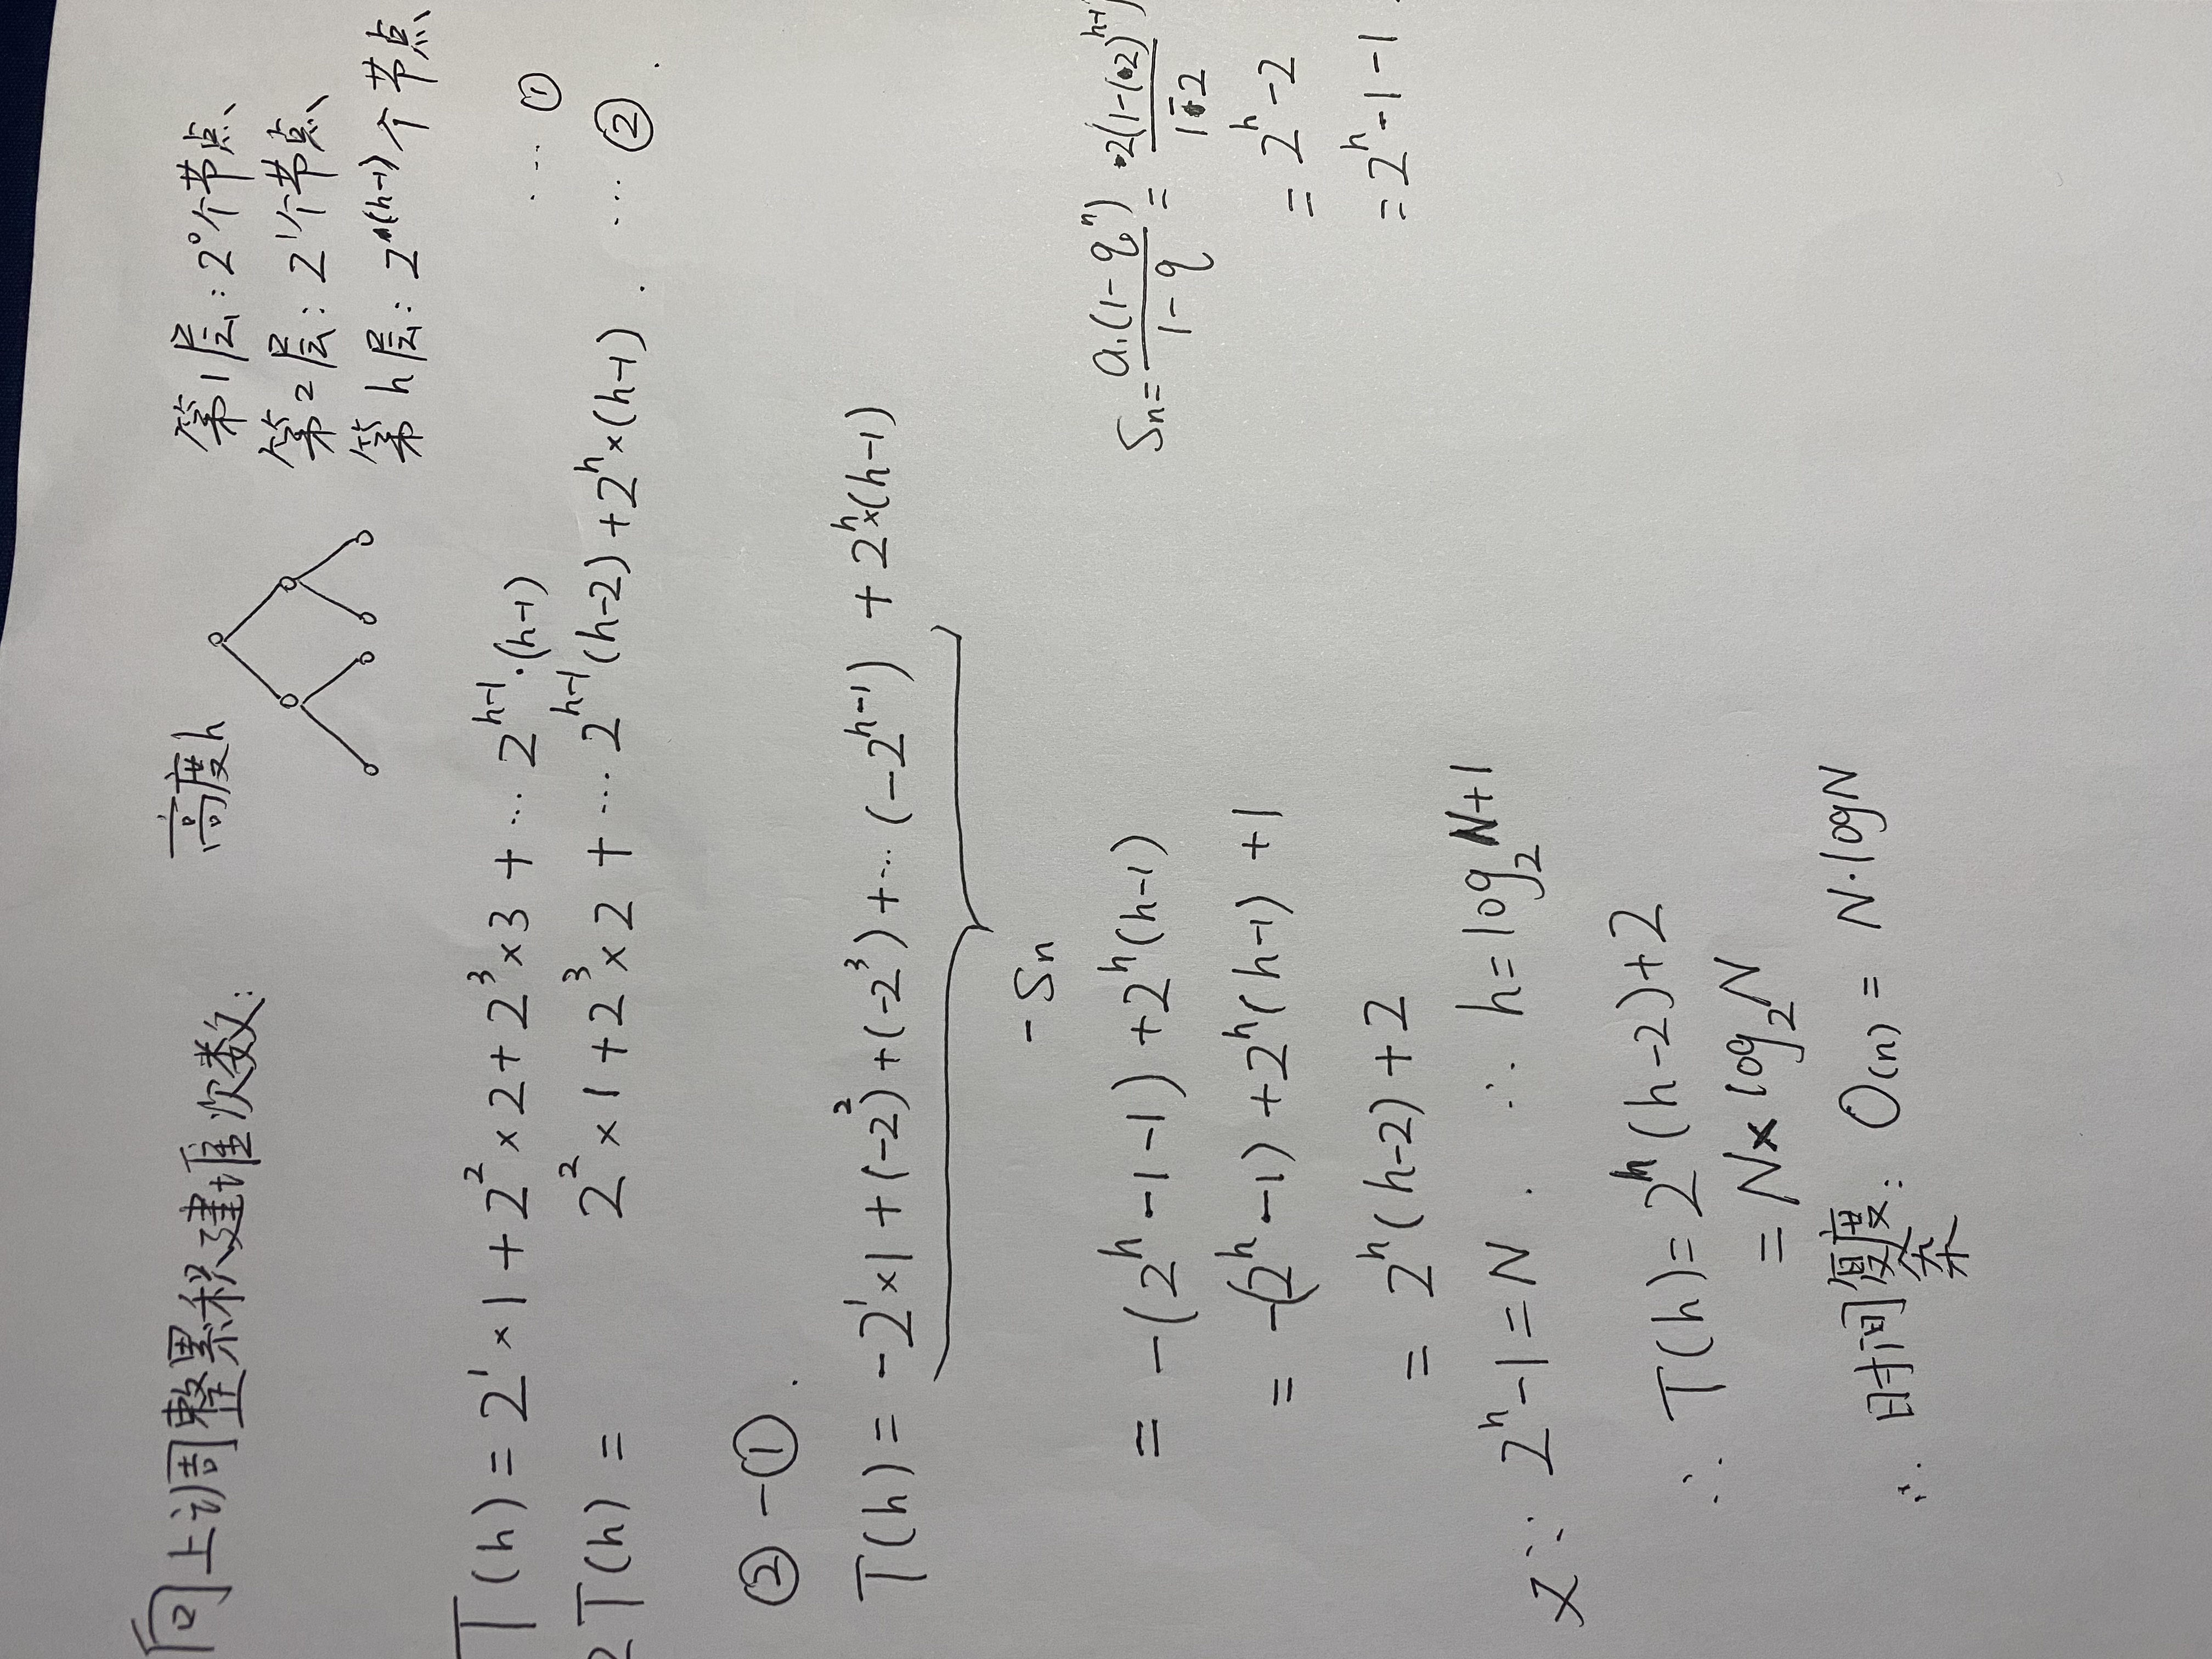 向上调整累积建堆次数:
高度h
第1层:2⁰个节点、
第2层:2¹个节点、
第h层:2^(h-1)个节点
T(h)=2¹×1+2²×2+2³×3+…2^(h-1)·(h-1) …①
2T(h)= 2²×1+2³×2+…2^(h-1)(h-2)+2^h×(h-1). …②.
②-①.
T(h)=-2¹×1+(-2²)+(-2³)+…(-2^(h-1))+2^h×(h-1)
-Sn
Sn=a₁(1-qⁿ)/(1-q)=2(1-(2)^(h-1))/(1-2)
=2^h-2
=2^h-1-1
=-(2^h-1-1)+2^h(h-1)
=-(2^h-1)+2^h(h-1)+1
=2^h(h-2)+2
又∵2^h-1=N. ∴h=log₂N+1
∴T(h)=2^h(h-2)+2
=N×log₂N
∴时间复杂度:O(n)=N·logN